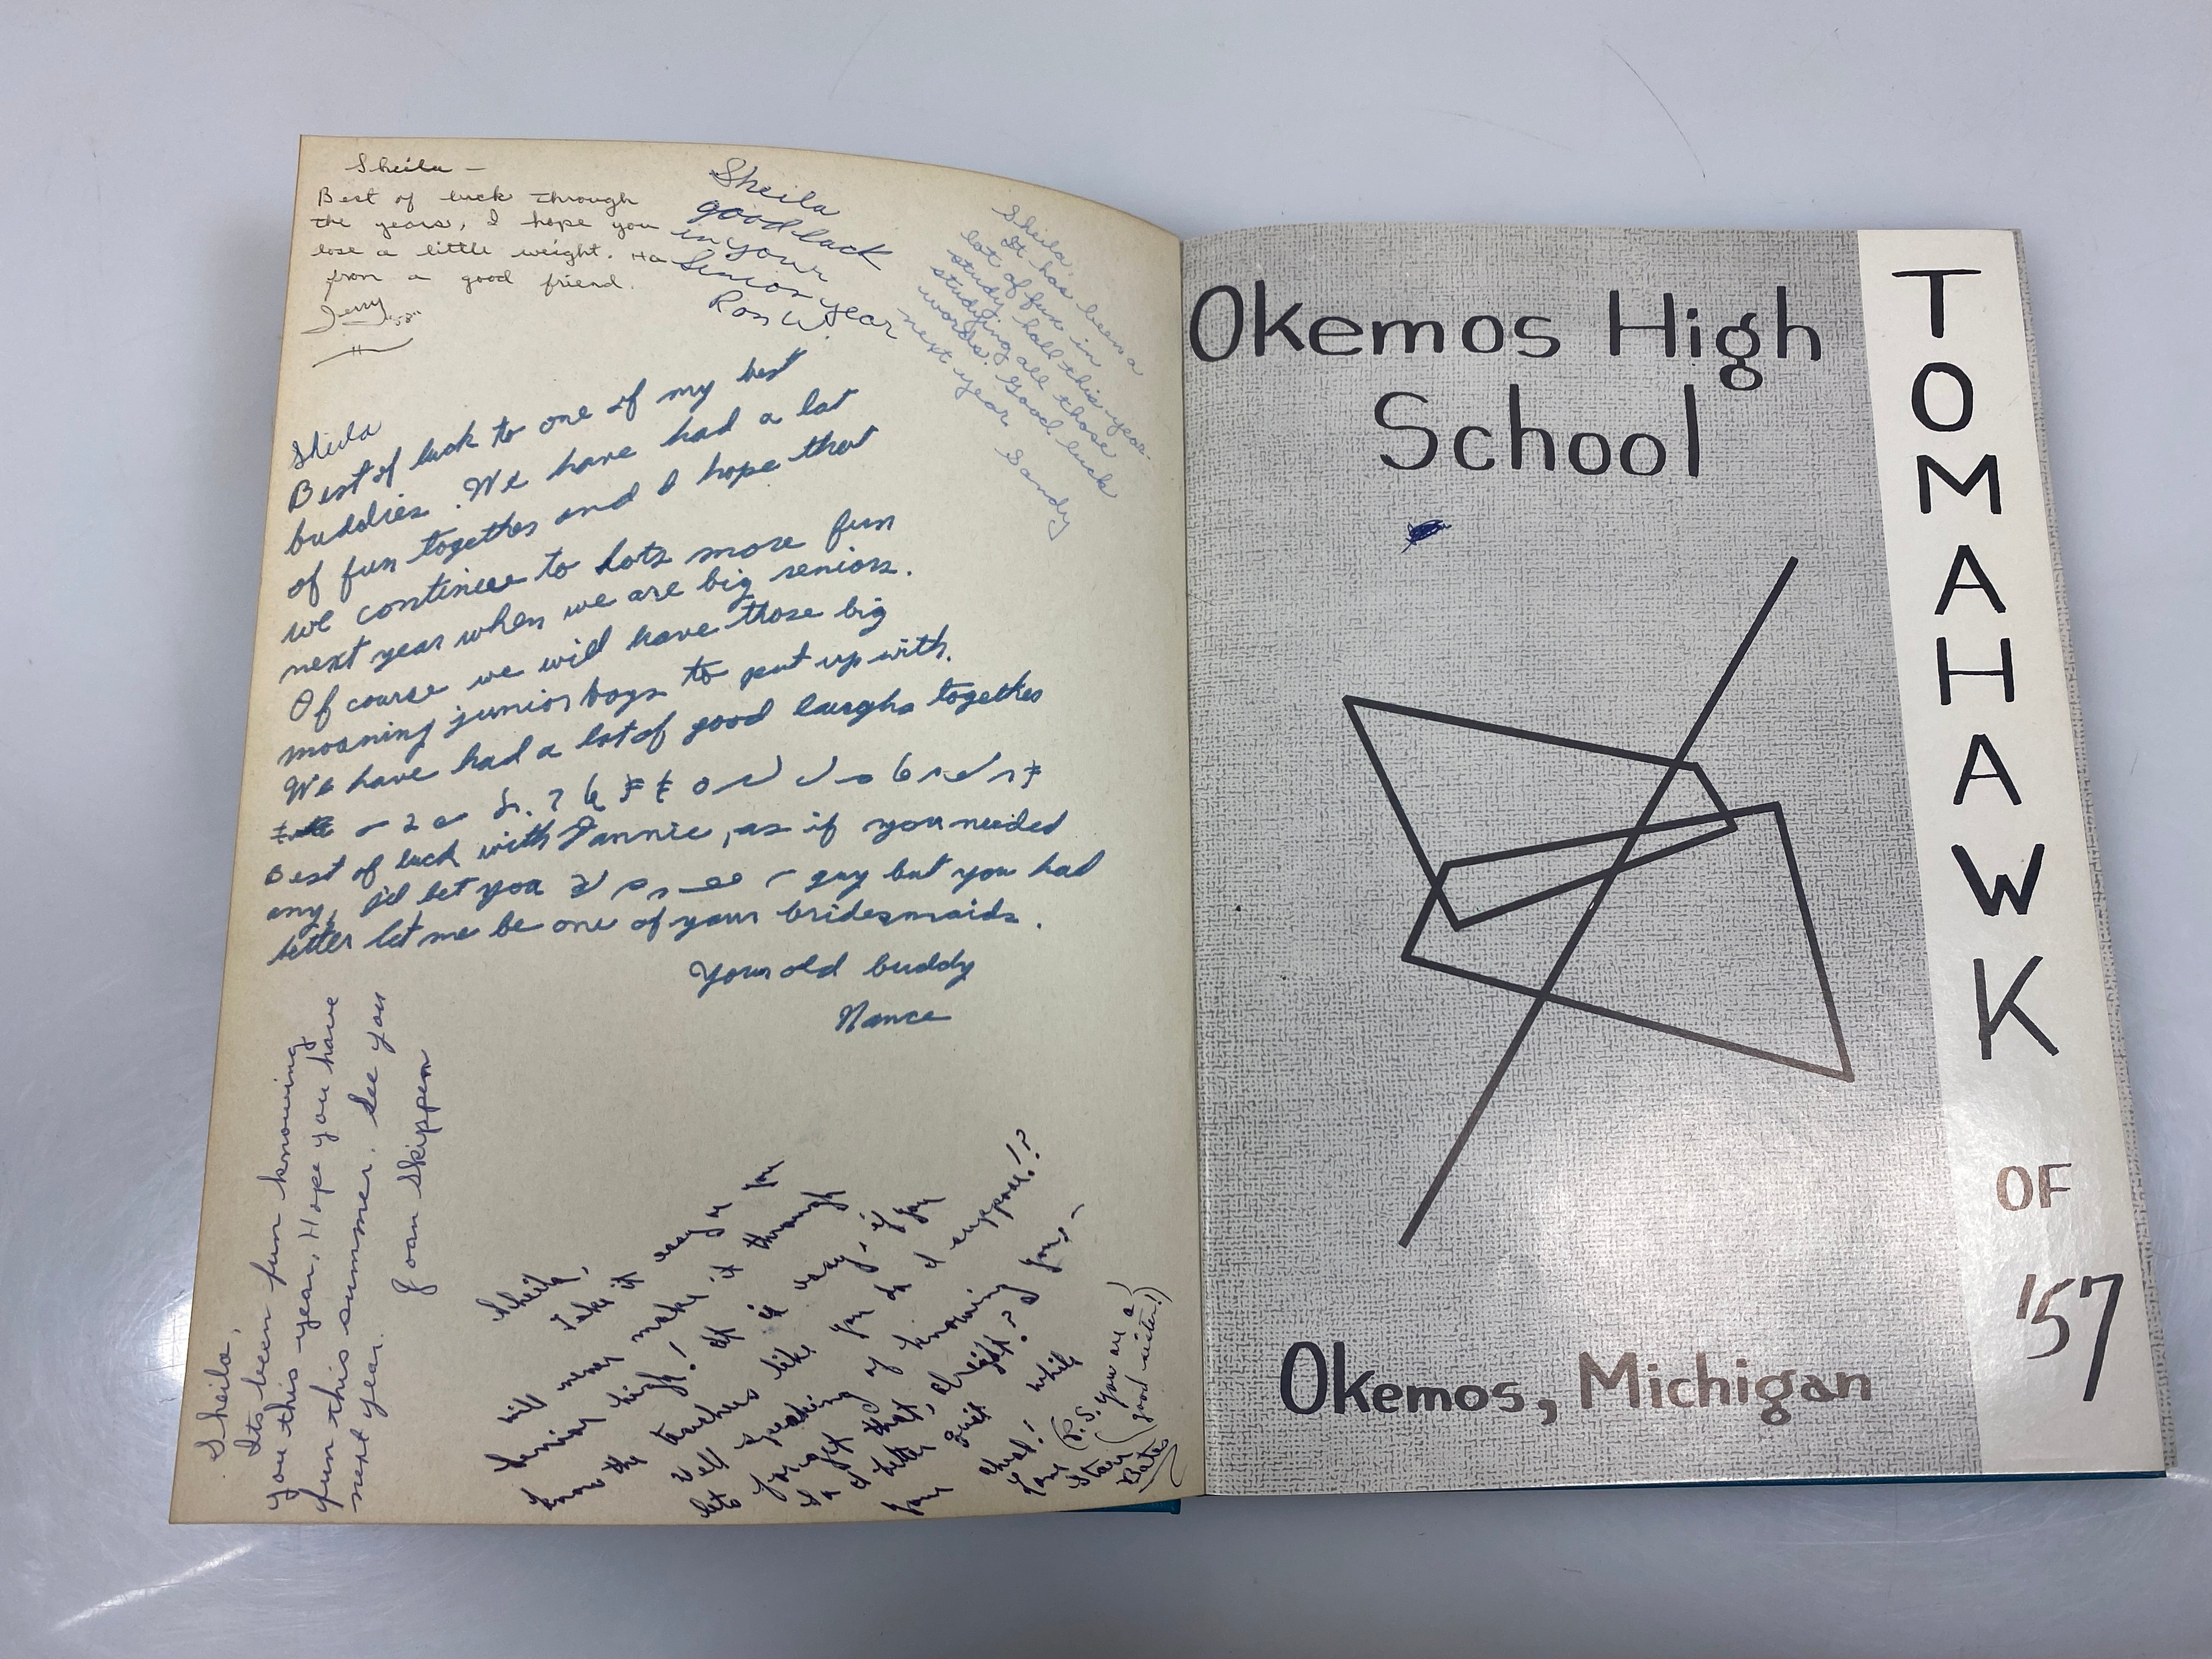 Sheila —
Best of luck through
the years, I hope you
lose a little weight. Ha
from a good friend.
Jerry "58"
Sheila
good luck
in your
Senior year
Ron W.
Sheila,
It has been a
lot of fun in
study hall this year.
studying all those
words. Good luck
next year.
Sandy
Sheila
Best of luck to one of my best
buddies. We have had a lot
of fun together and I hope that
we continue to hots more fun
next year when we are big seniors.
Of course we will have those big
moaning junior boys to put up with.
We have had a lot of good laughs together
Best of luck with, as if you needed
any, I'd bet you guy but you had
better let me be one of your bridesmaids.
Your old buddy
Nance
Sheila,
Its been fun knowing
you this year. Hope you have
fun this summer. See you
next year.
Joan Skippen
Sheila,
Take it easy or you
will never make it through
Senior high! At it easy, if you
know the teachers like you do I suppose!?
Well speaking of knowing you —
lets forget that, alright?
In a letter
your while
(P.S. you are a
good sister!)
Bates
Okemos High
School
Okemos, Michigan
TOMAHAWK
OF
'57